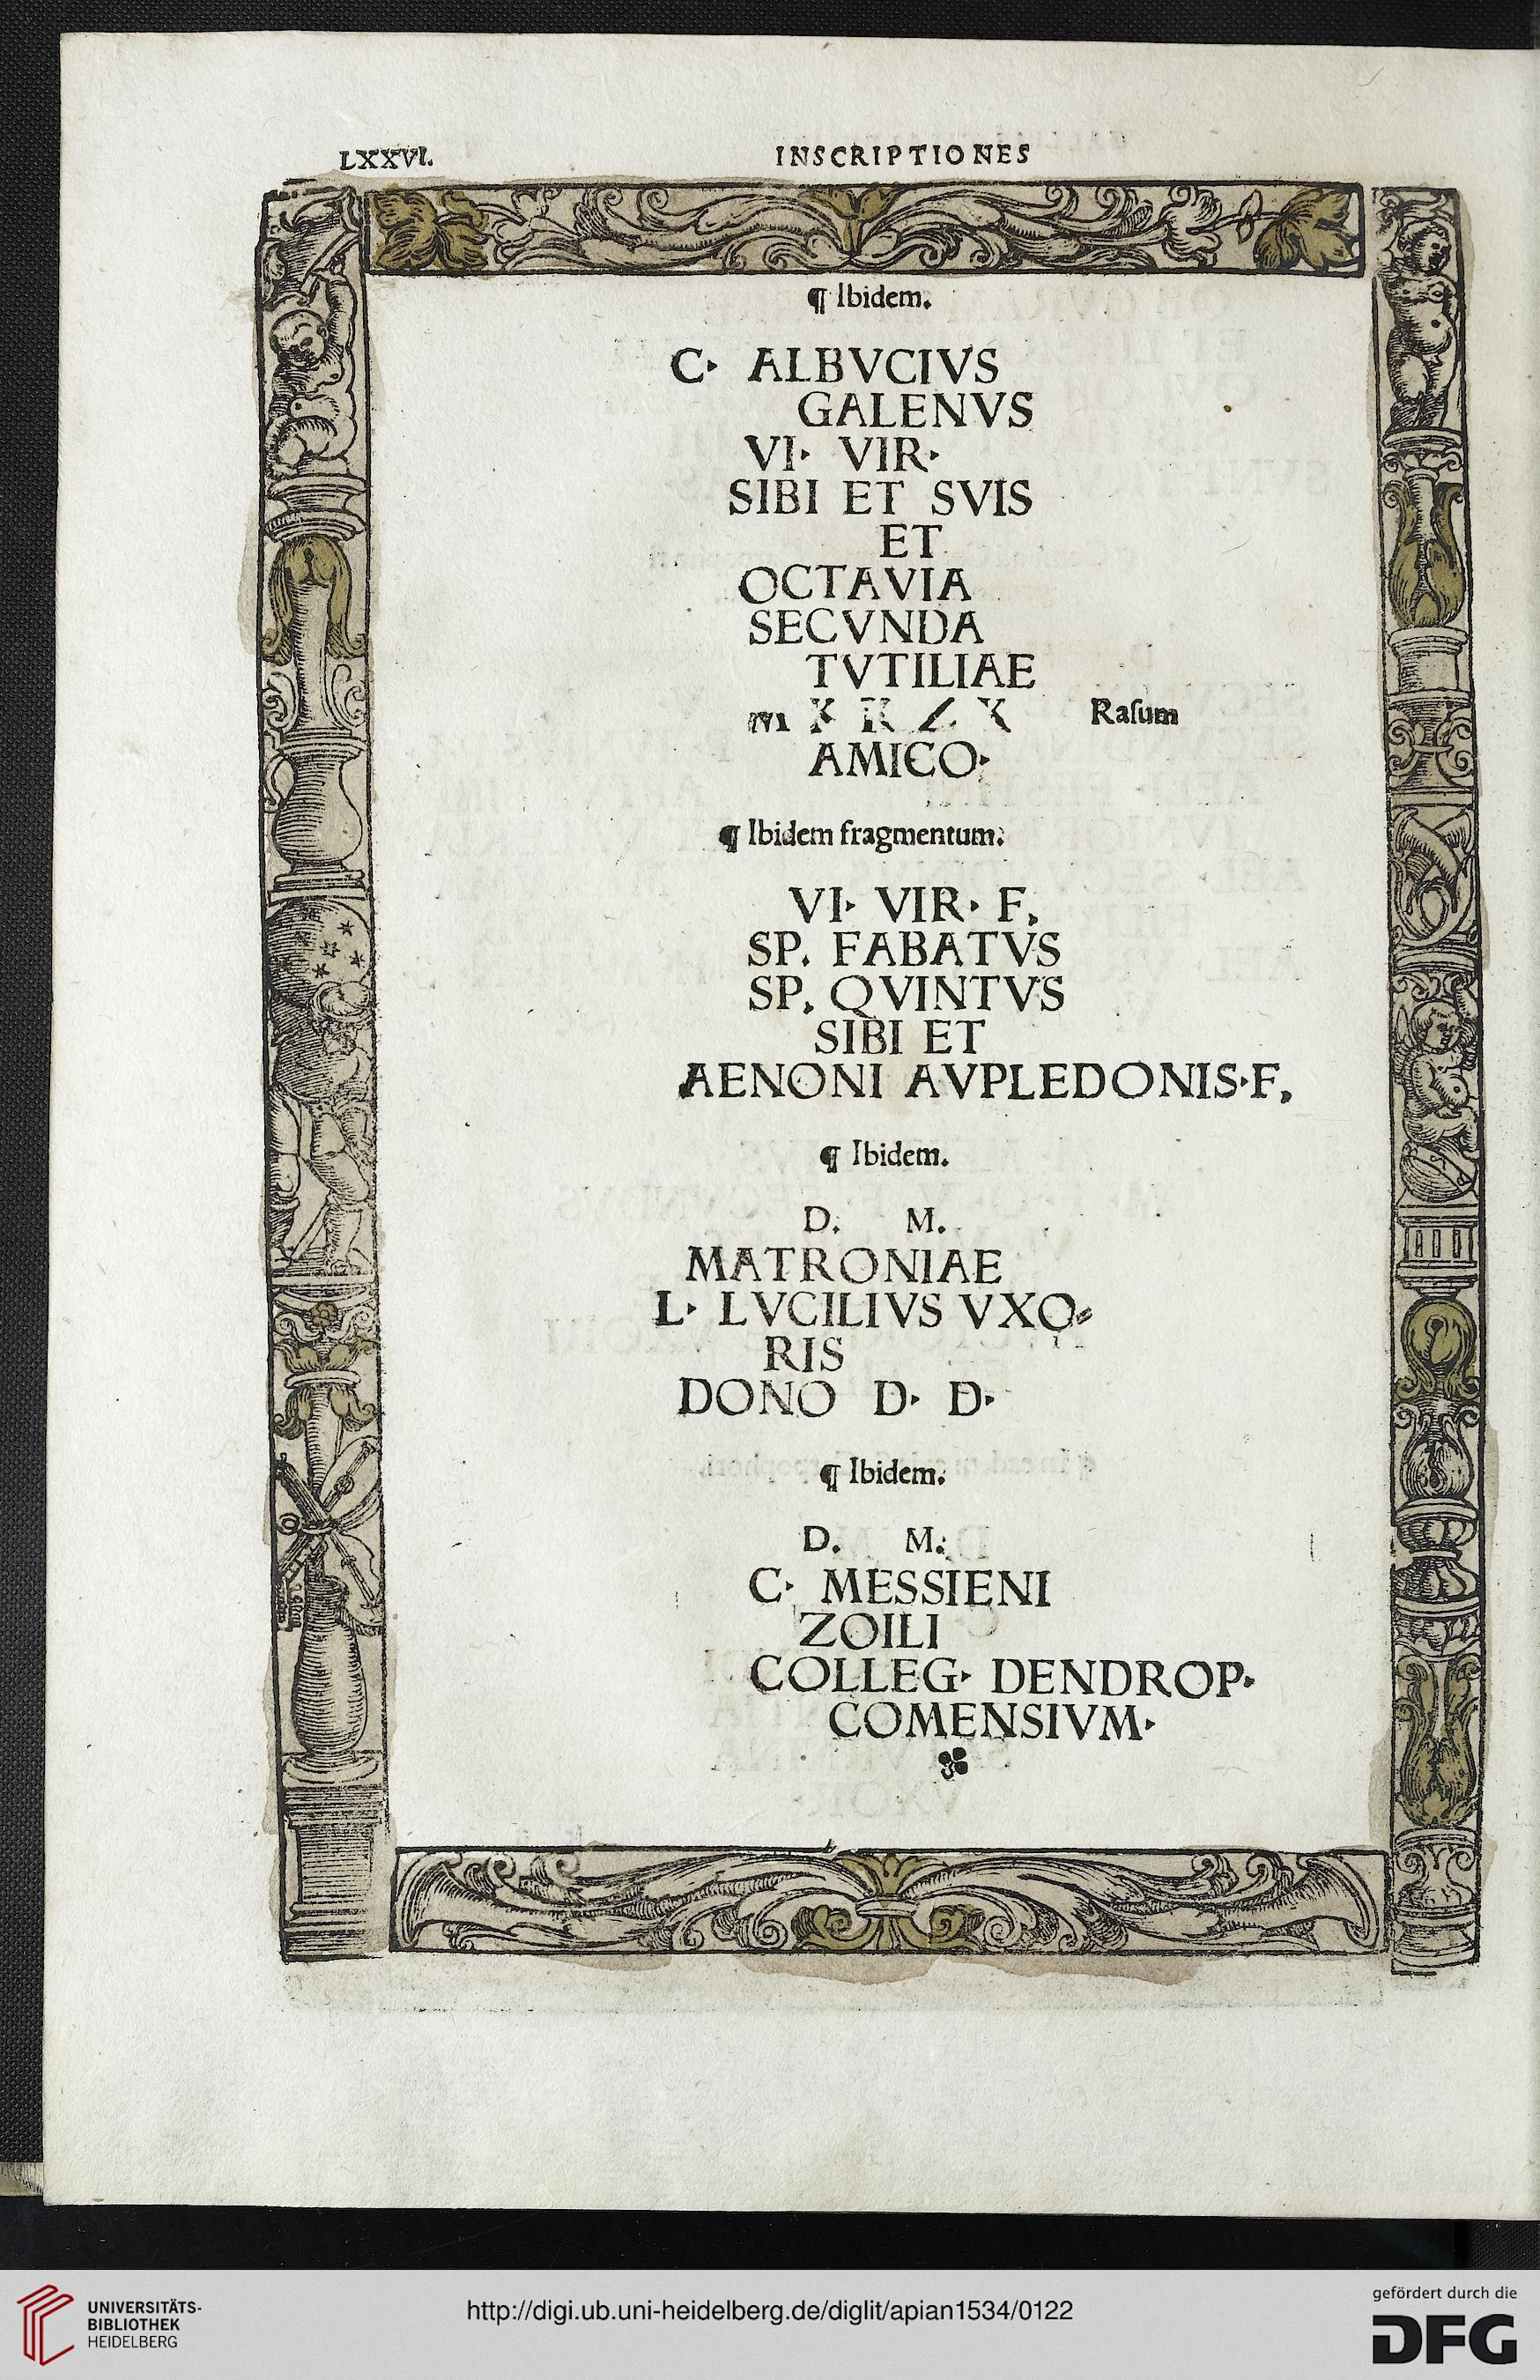 LXXVI.
INSCRIPTIONES
¶ Ibidem.
C· ALBVCIVS
GALENVS
VI· VIR·
SIBI ET SVIS
ET
OCTAVIA
SECVNDA
TVTILIAE
Raſum
AMICO·
¶ Ibidem fragmentum.
VI· VIR· F.
SP. FABATVS
SP. QVINTVS
SIBI ET
AENONI AVPLEDONIS·F.
¶ Ibidem.
D. M.
MATRONIAE
L· LVCILIVS VXO⸗
RIS
DONO D· D·
¶ Ibidem.
D. M.
C· MESSIENI
ZOILI
COLLEG· DENDROP·
COMENSIVM·
UNIVERSITÄTS-
BIBLIOTHEK
HEIDELBERG
http://digi.ub.uni-heidelberg.de/diglit/apian1534/0122
gefördert durch die
DFG